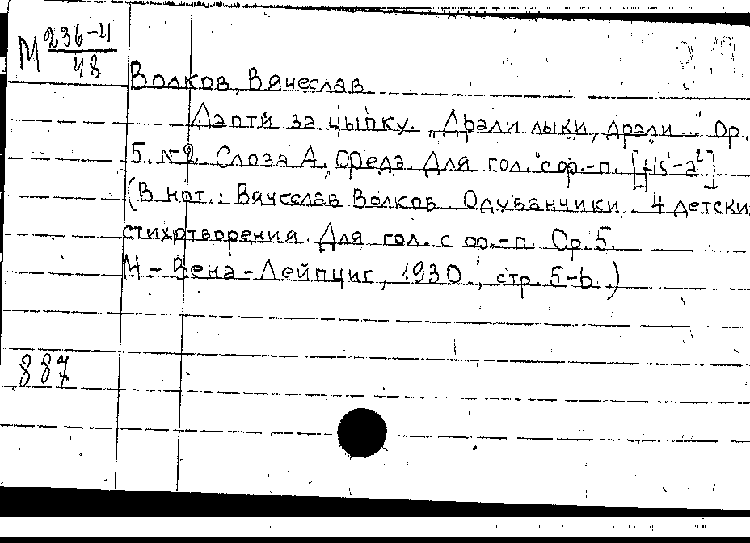 М 236-4/48
Волков, Вячеслав
Лапти за цыпку. „Драли лыки, драли..." Ор.
5. №2. Слова А. Для гол. с ф.-п. [fis¹-a²]
(В нот.: Вячеслав Волков. Одуванчики. 4 детски
стихотворения. Для гол. с ф.-п. Ор. 5.
М-Вена-Лейпциг, 1930., стр. 5-6.)
887